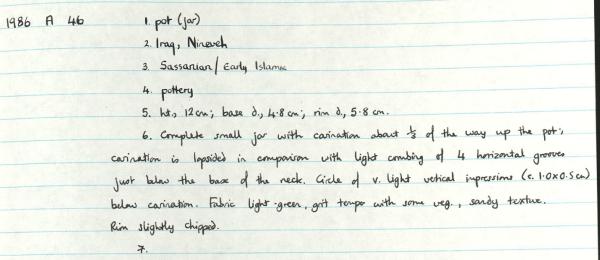 1986 A 46 1. pot (jar)
2. Iraq, Nineveh
3. Sassanian / Early Islamic
4. pottery
5. ht., 12 cm; base d., 4.8 cm; rim d., 5.8 cm.
6. Complete small jar with carination about ⅓ of the way up the pot;
carination is lopsided in comparison with light combing of 4 horizontal grooves
just below the base of the neck. Circle of v. light vertical impressions (c. 1.0 x 0.5 cm)
below carination. Fabric light-green, grit temper with some veg., sandy texture.
Rim slightly chipped.
7.